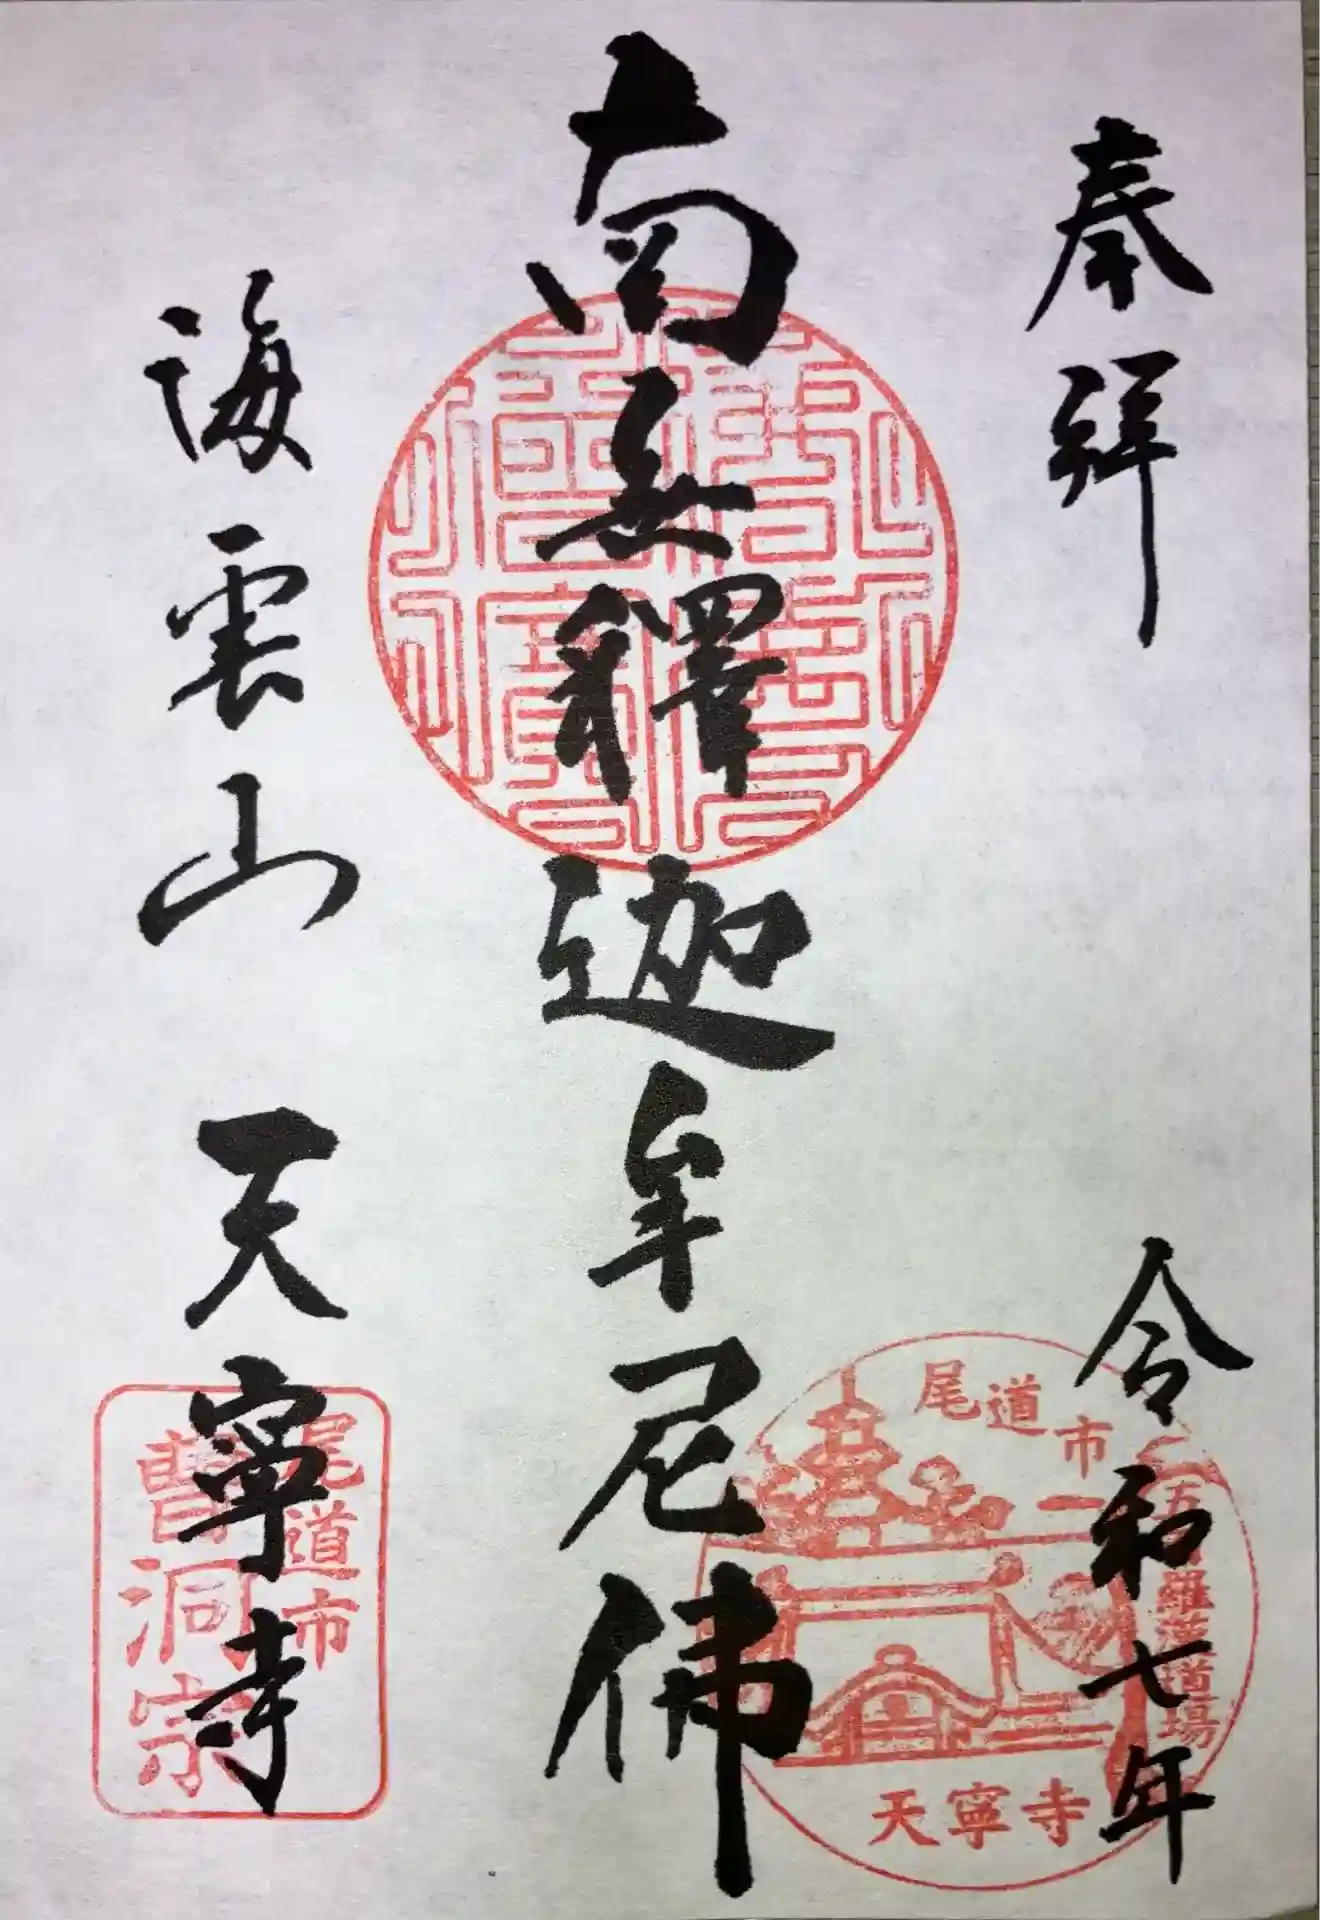 奉拝
令和七年
南無釋迦牟尼佛
海雲山 天寧寺
尾道市
羅漢道場
天寧寺
尾道市
曹洞宗